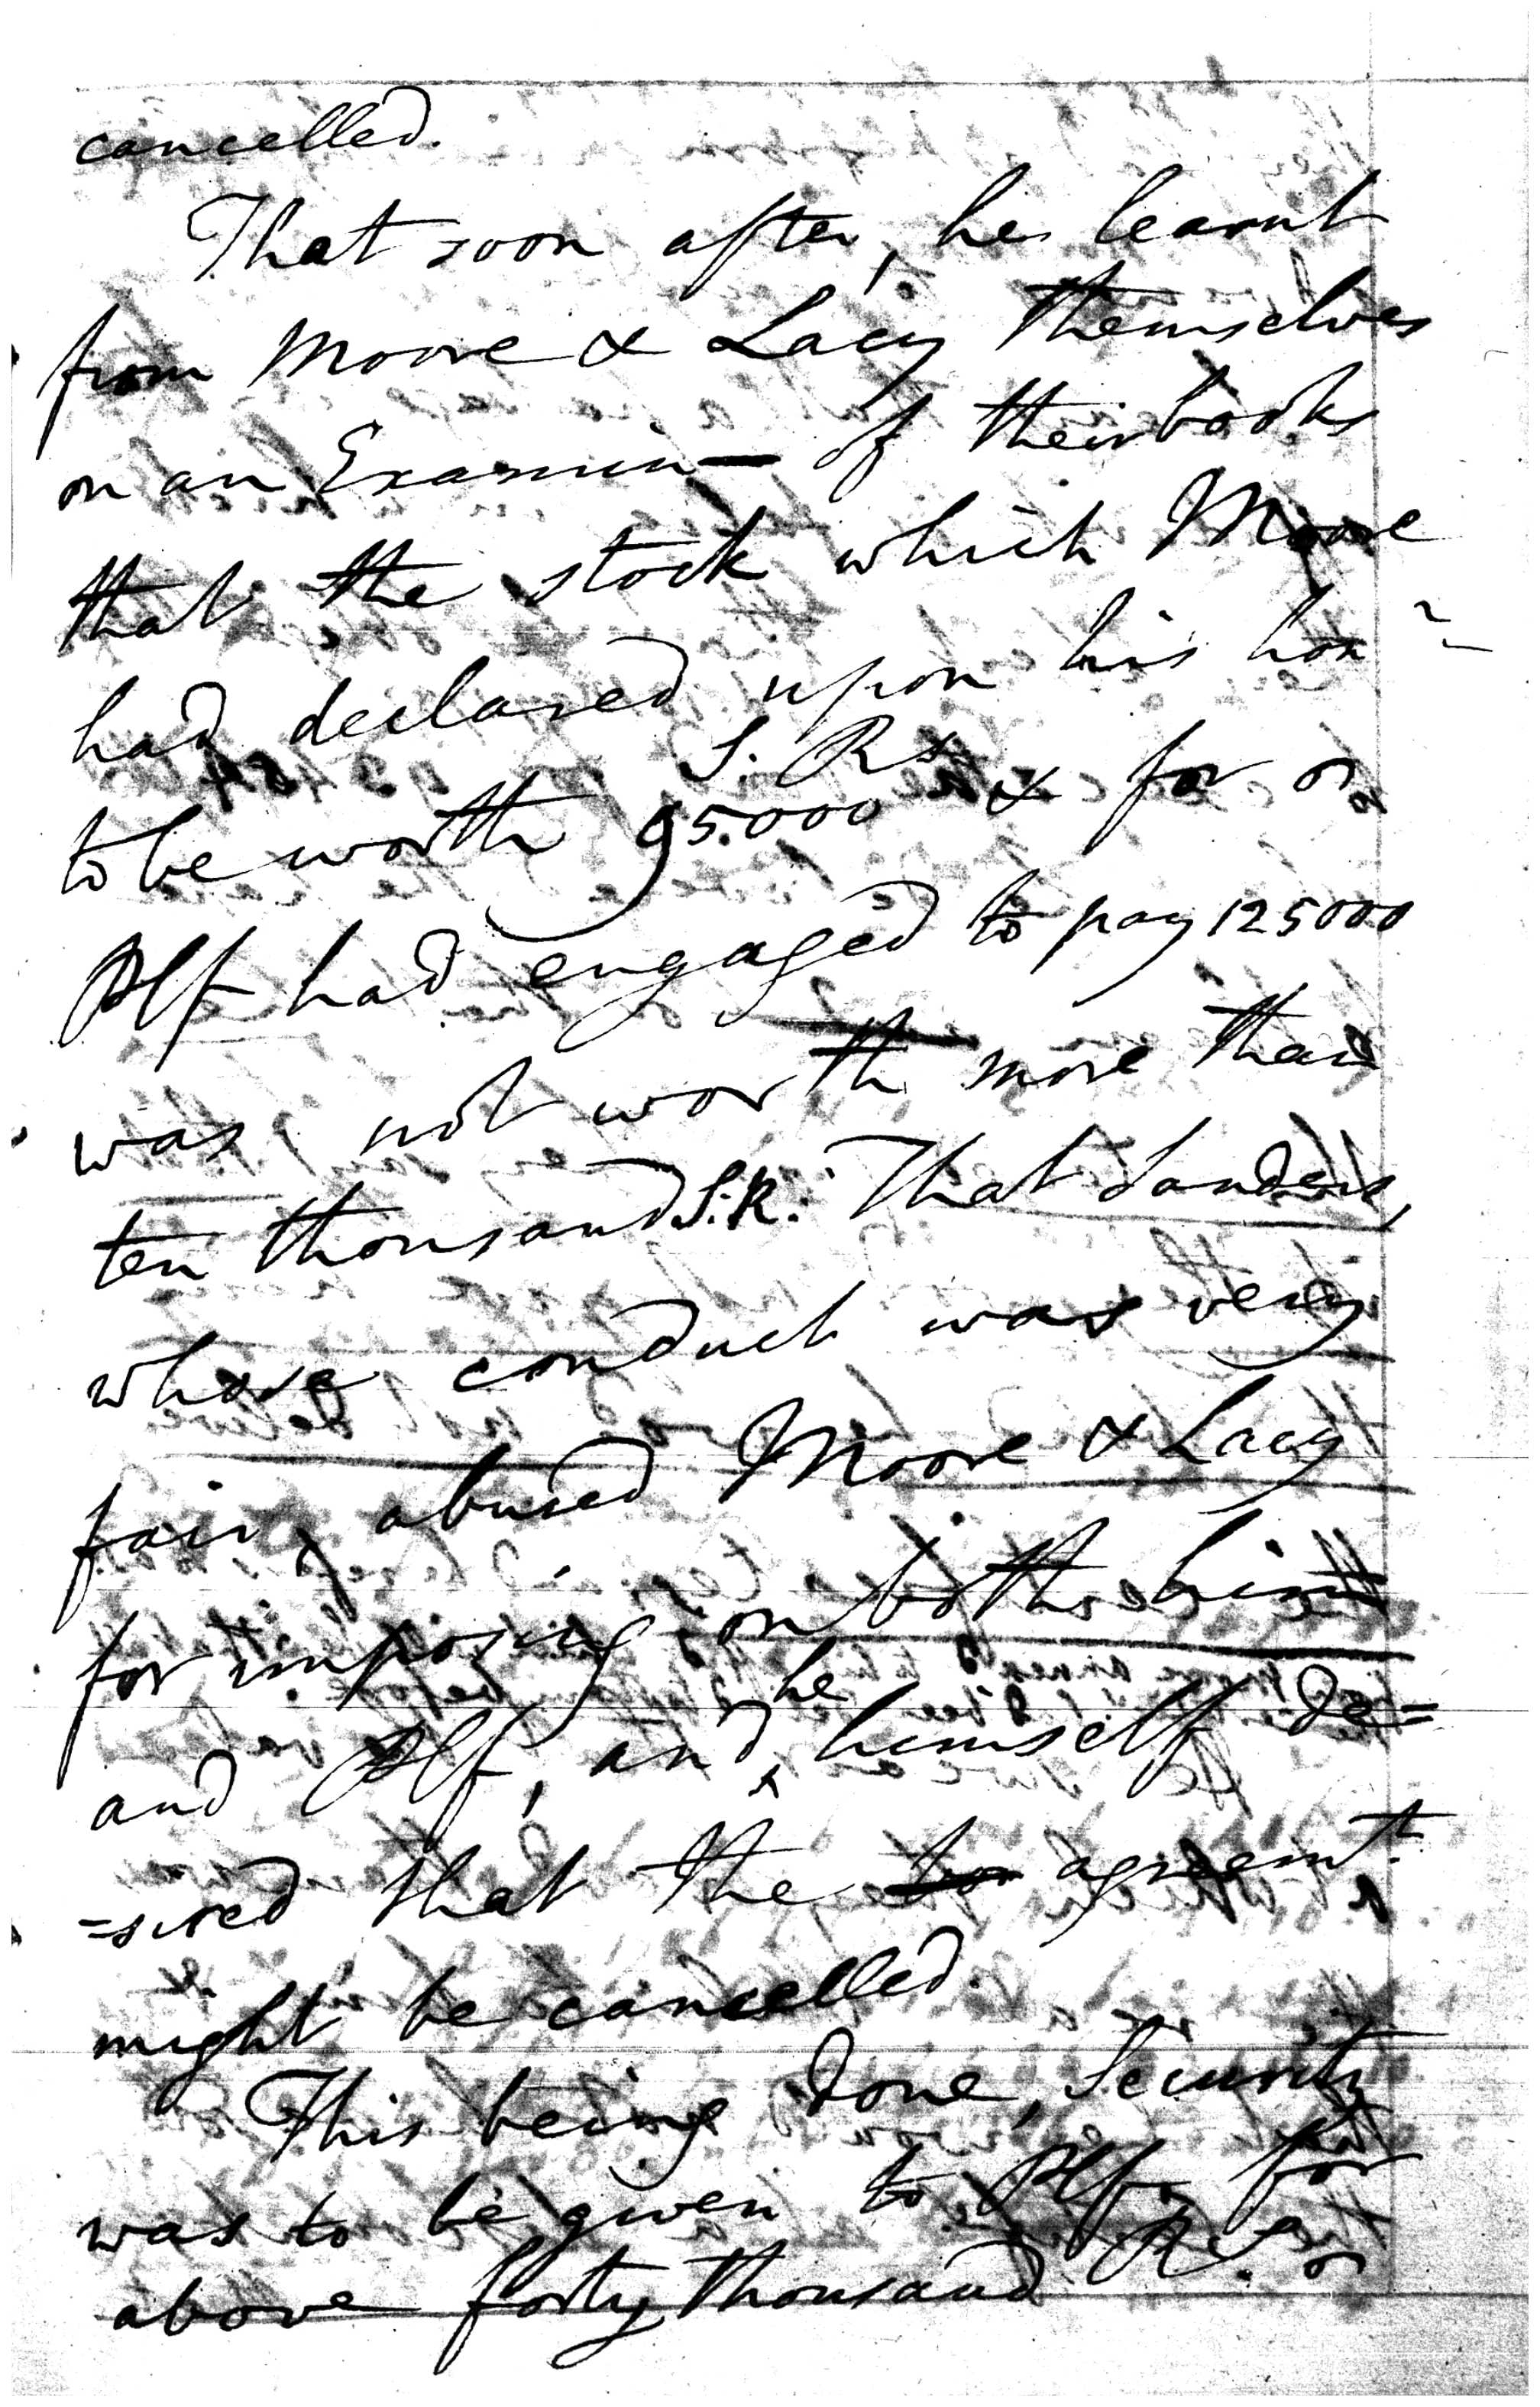 cancelled.
That soon after, he learnt
from Moore & Lacy themselves
on an Examin— of their books
that the stock which Moore
had declared upon his hon
S. Rs
to be worth 95.000 & for
Plf had engaged to pay 125000
was not worth more than
ten thousand S.R. That Sanders,
whose conduct was very
fair, abused Moore & Lacy
for imposing on both him
he
and Plf, and himself de=
=sired that the agreemt.
might be cancelled.
This being done, Security
was to be given to Plf for
above forty thousand R.s